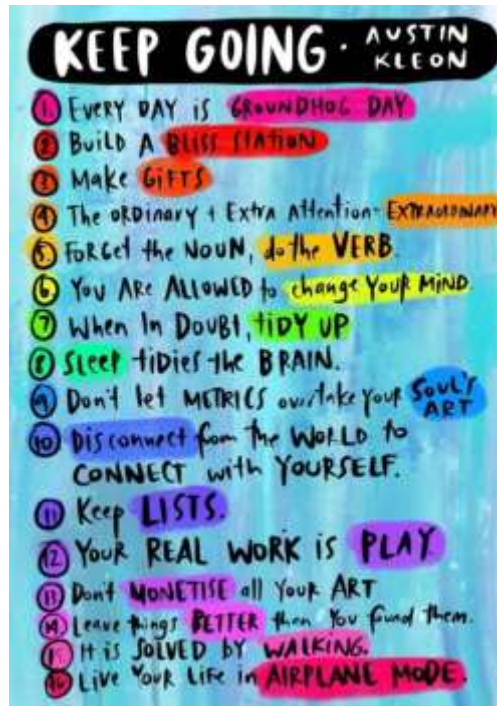 KEEP GOING · AUSTIN KLEON
1. EVERY DAY is GROUNDHOG DAY
2 BuilD A BLISS STATION
3 Make GIFTS
4 The ORDinary + Extra Attention = EXTRAORDINARY
5. FORGet the NOUN, do the VERB.
6 YOU ARE ALLOWED to change YOUR MIND.
7 When In Doubt, tiDY UP
8 SLEEP tidies the BRAIN.
9 Don't let METRICS overtake your SOUL'S
ART
10 Disconnect from the WORLD to
CONNECT with YOURSELF.
11 Keep LISTS.
12. YOUR REAL WORK is PLAY
13 Don't MONETISE all YOUR ART
14. Leave things BETTER then You found them.
15 It is SOLVED BY WALKING.
16 LIVE YOUR LIFE in AIRPLANE MODE.